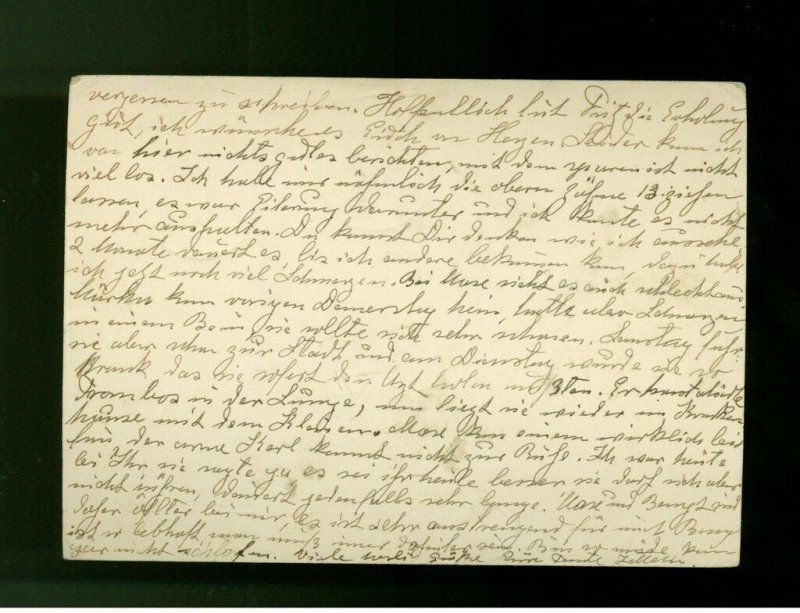 vergessen zu schreiben. Hoffentlich tut Dir die Erholung
gut, ich wünsche es Euch von Herzen. Leider kann ich
von hier nichts gutes berichten, mit dem ist nicht
viel los. Ich habe mir nämlich die obern Zähne 13 ziehen
lassen, es war Eiterung darunter und ich konnte es nicht
mehr aushalten. Du kannst Dir denken wie ich aussehe
2 Monate dauert es, bis ich andere bekommen kann, dazu habe
ich jetzt noch viel Schmerzen. Bei Maxe sieht es auch schlecht aus,
kam vorigen Donnerstag heim, hatte aber Schmerzen
in einem Bein, sie sollte sich sehr schonen. Samstag fuhr
sie aber schon zur Stadt, und am Dienstag wurde sie so
krank das sie sofort den Arzt holen mußten. Er
Trombos in der Lunge, nun liegt sie wieder im Kranken
hause mit dem Kleinen. Maxe kann einem wirklich leid
tun der arme Kerl kommt nicht zur Ruhe. Ich war heute
bei Ihr sie sagte ja es sei ihr heute besser sie darf sich aber
nicht rühren, dauert jedenfalls sehr lange. Maxe und Bengt sind
daher öfter bei mir, es ist sehr anstrengend für mich Bengt
ist so lebhaft man muß immer dahinter sein. Bin so müde, kann
gar nicht schlafen. Viele herzl Grüße Eure Tante